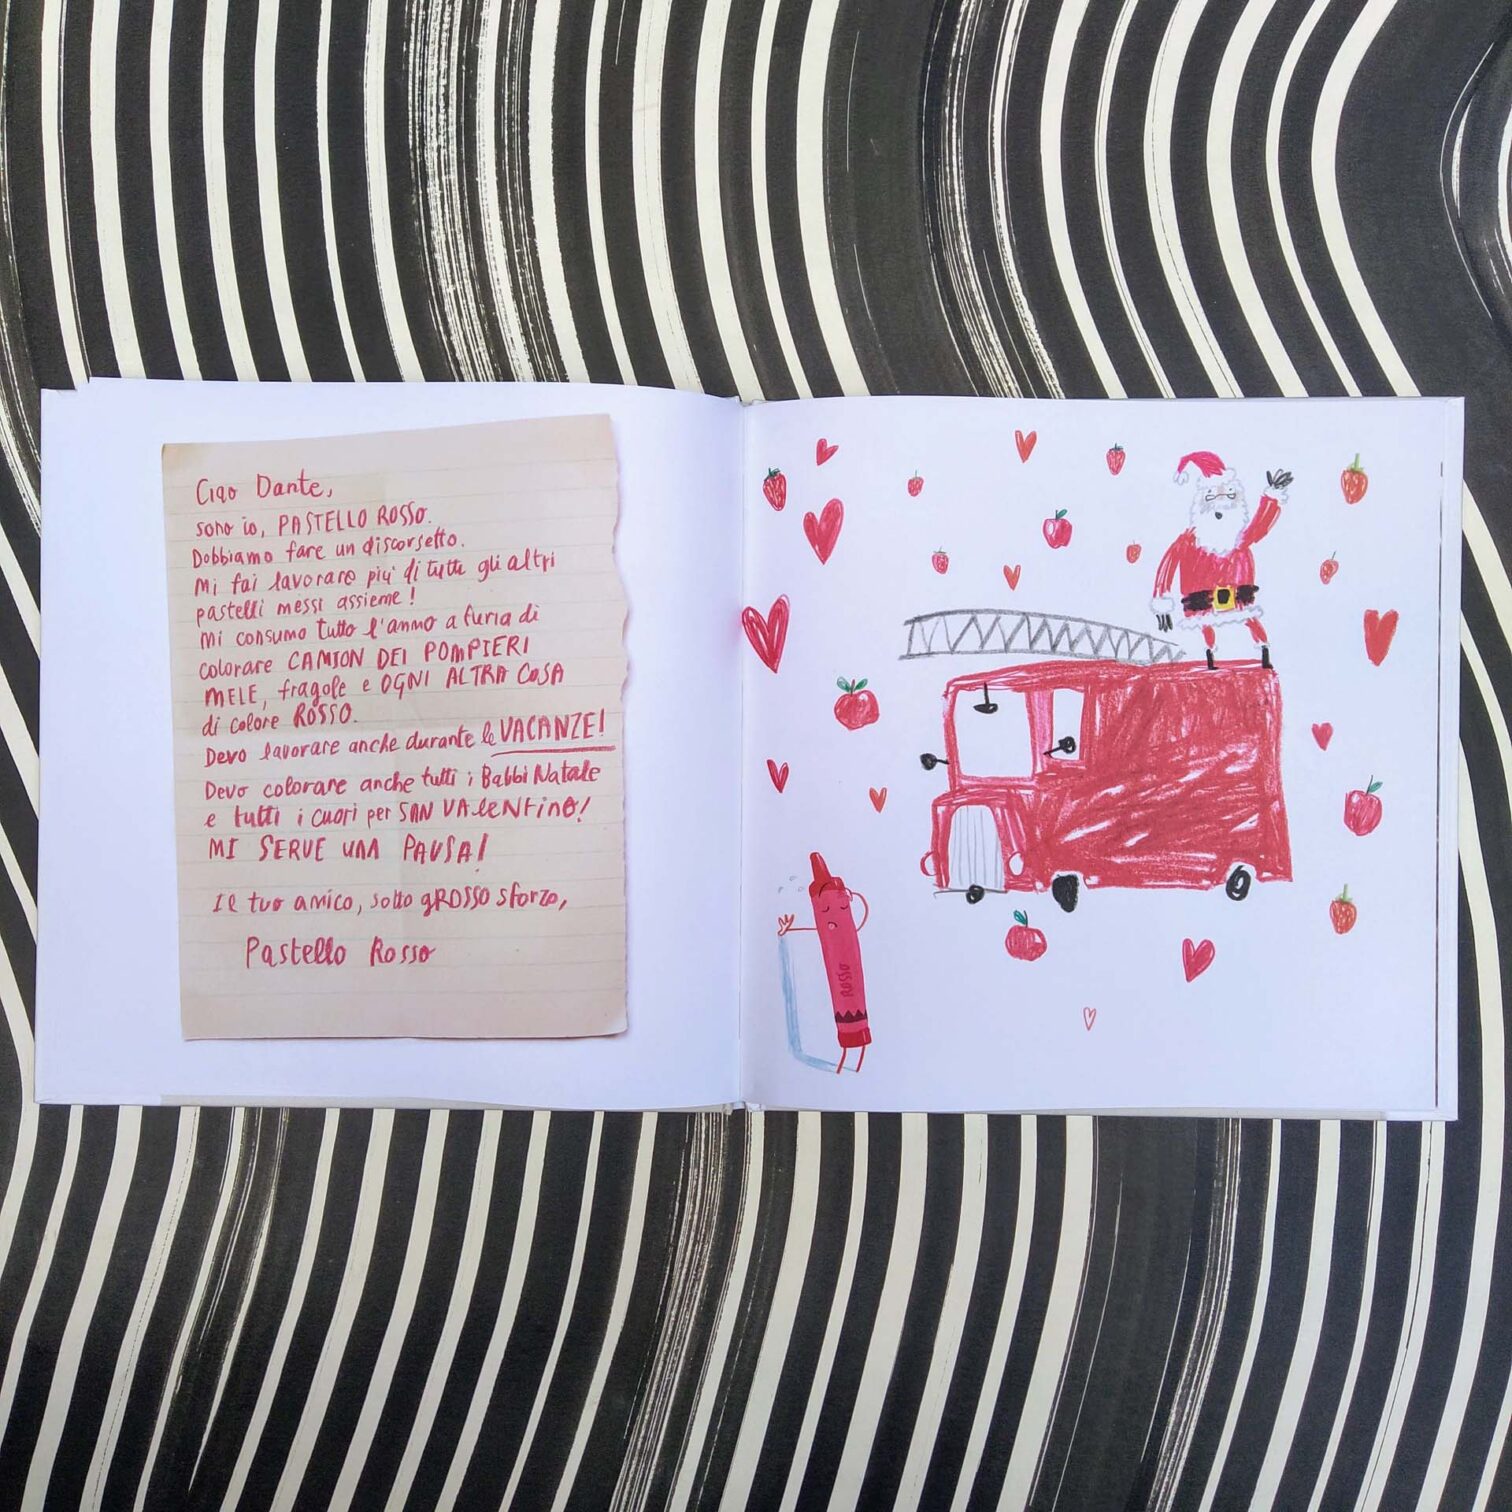 Ciao Dante,
sono io, PASTELLO ROSSO.
Dobbiamo fare un discorsetto.
Mi fai lavorare più di tutti gli altri
pastelli messi assieme!
Mi consumo tutto l'anno a furia di
colorare CAMION DEI POMPIERI
MELE, fragole e OGNI ALTRA COSA
di colore ROSSO.
Devo lavorare anche durante le VACANZE!
Devo colorare anche tutti i Babbi Natale
e tutti i cuori per SAN VALENTINO!
MI SERVE UNA PAUSA!
Il tuo amico, sotto gROSSO sforzo,
Pastello Rosso
ROSSO